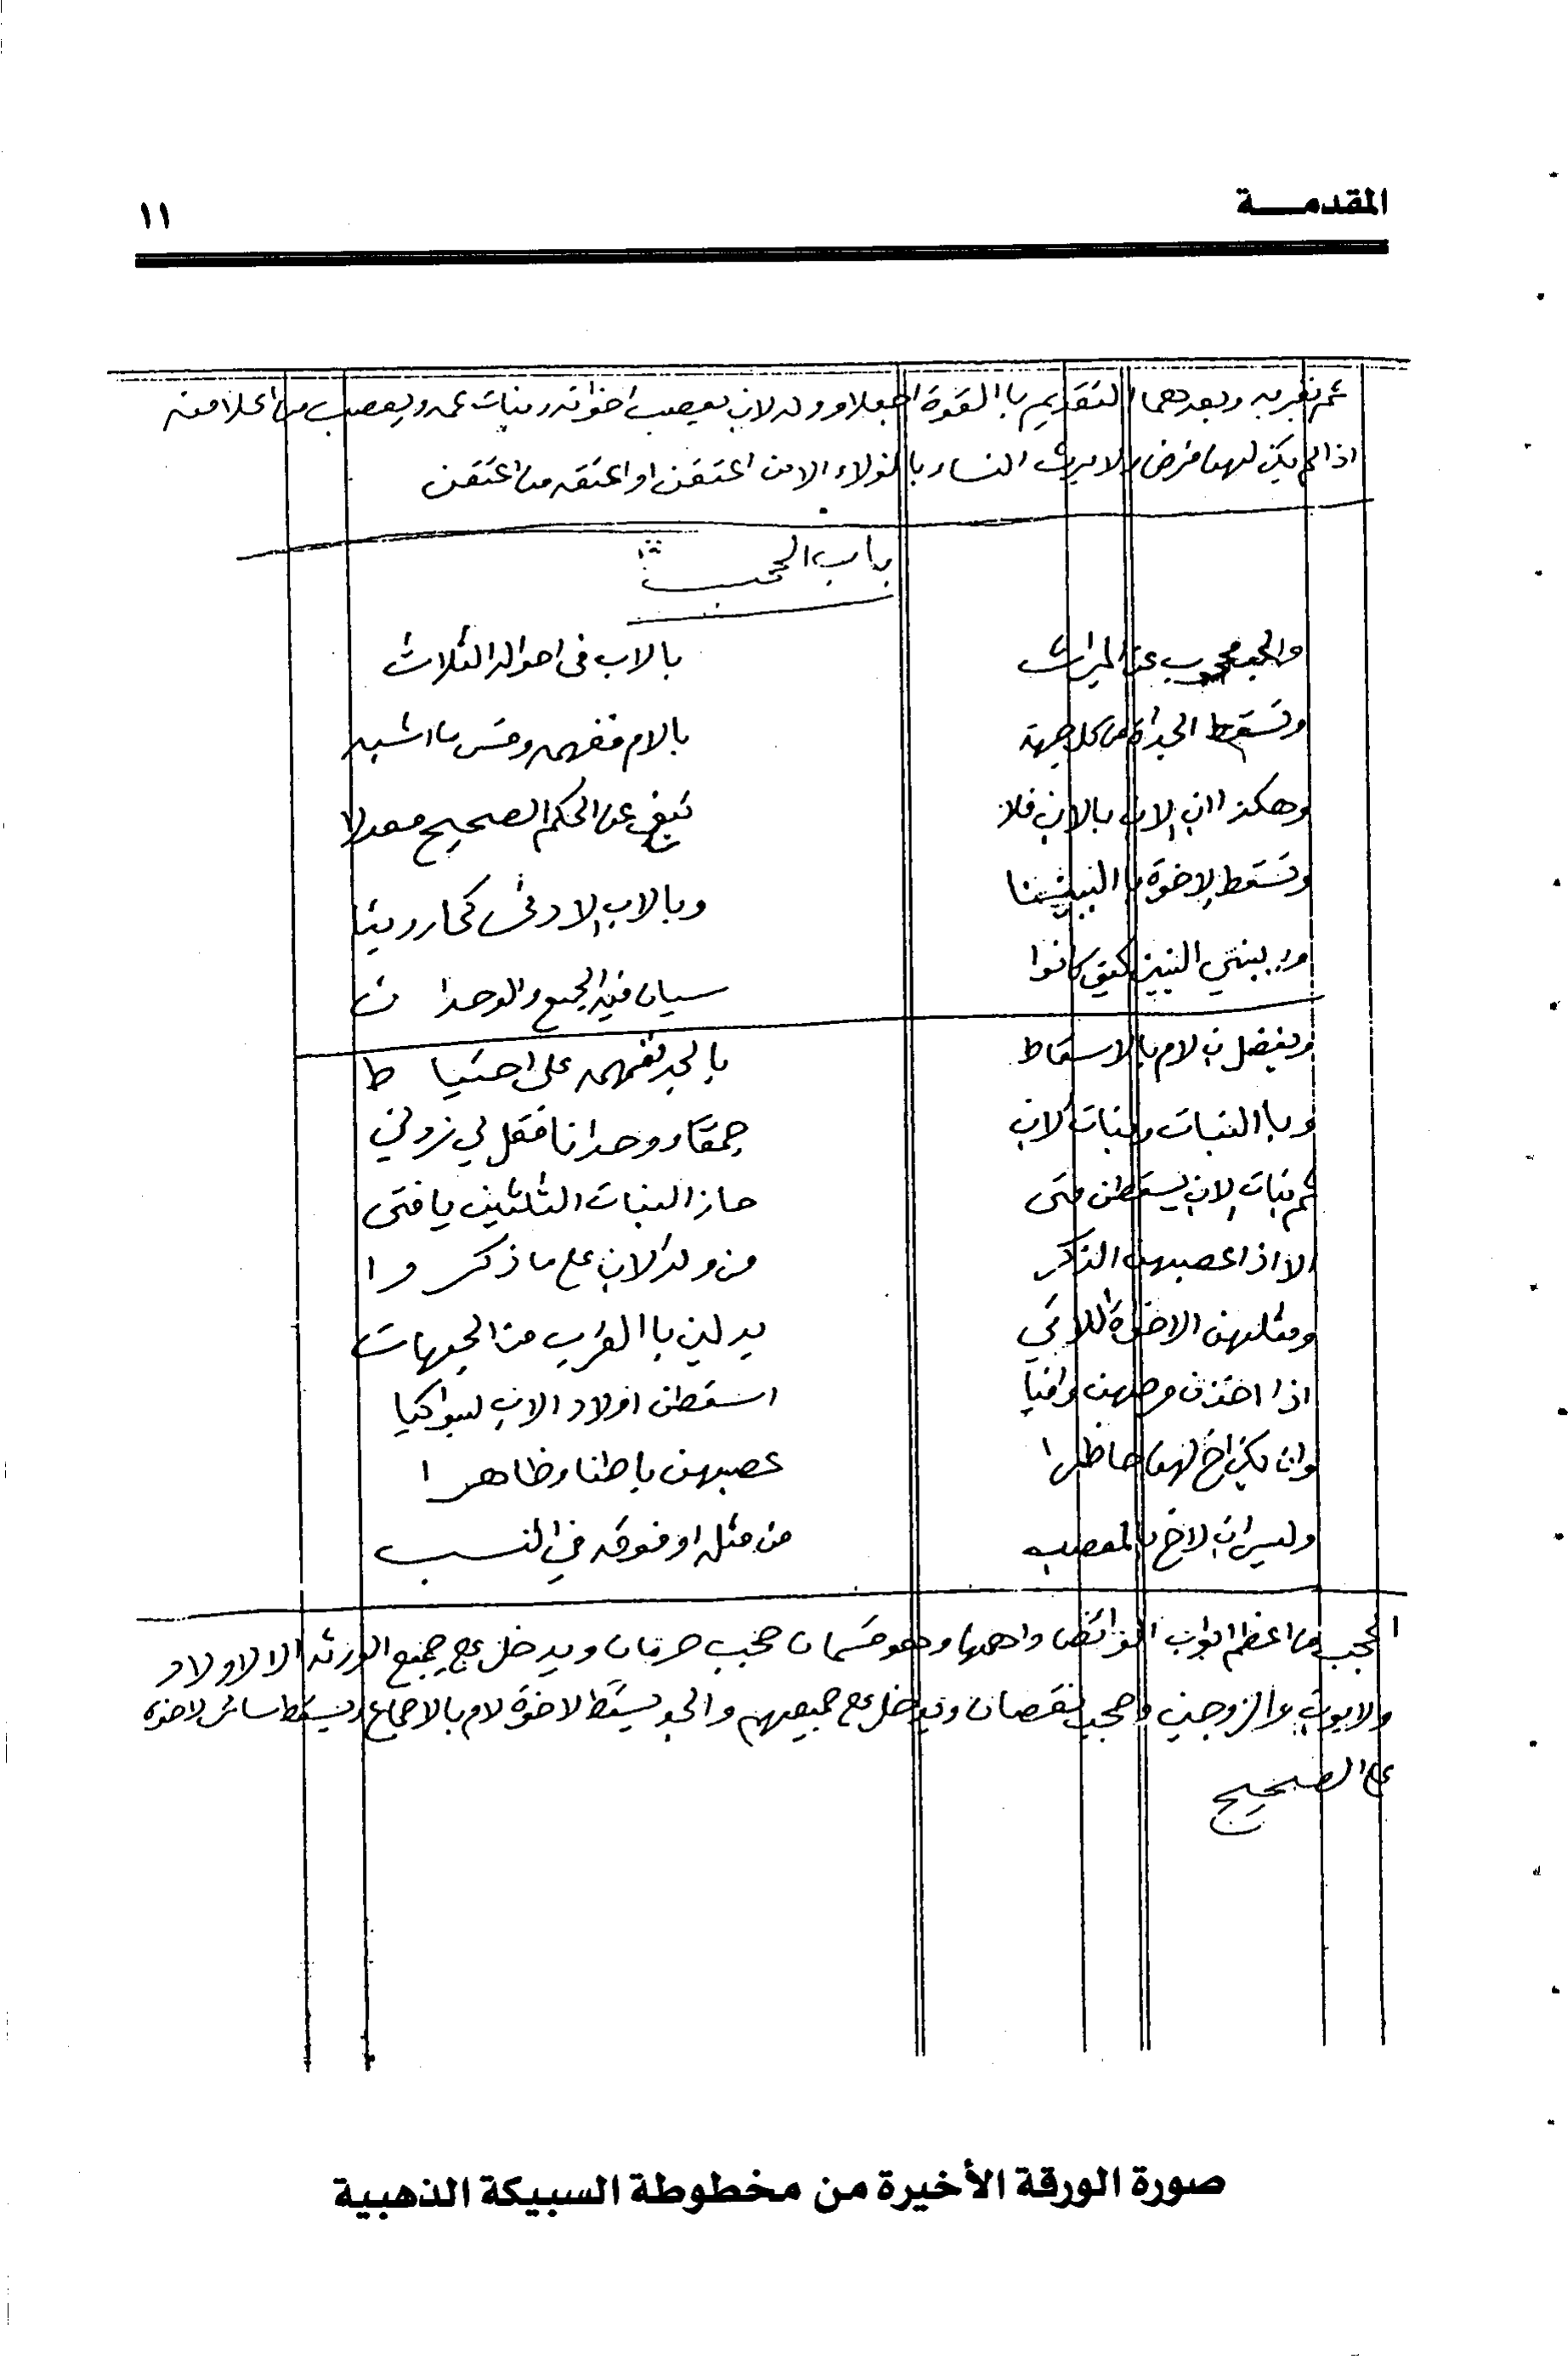 المقدمـــــة
١١
ثم بقربه وبعدهما التقديم باالقوة اجعلا وولد لابن يعصب اخواته وبنات عمه ويعصب من اعلا منه
اذا لم يكن لهن فرض ولا يرث النساء بالولاء الا من اعتقن او اعتقه من اعتقن
باب الحجب
والجد محجوب عن الميراث بالاب في احواله الثلاث
وتسقط الجداة من كل جهة بالام فافهمه وقس ما اشبه
وهكذا ابن الابن بالابن فلا تبغي عن الحكم الصحيح معدلا
وتسقط الاخوة باالبنينا وبالاب الادنى كما روينا
وببني البنين كيف كانوا سيان فيه الجمع والوحدا ن
ويفضل بن لام بالاسقاط بالجد فافهمه على احتيا ط
وباالبنات وبنات لابن جمعا ووحدانا فقل لي زدني
ثم بنات الابن يسقطن متى حاز البنات الثلثين يافتى
الا اذا عصبهن الذكر من ولد لابن على ما ذكر وا
ومثلهن الاخواة اللاتي يدلين باالقرب من الجهات
اذا اخذن فرضهن وافيا اسقطن اولاد الاب البواكيا
وان يكن اخ لهن حاظرا عصبهن باطنا وظاهر ا
وليس ابن لاخ بالمعصب من مثله او فوقه في النسب
الحجب من اعظم ابواب الفرائض واهمها وهو قسمان حجب حرمان ويدخل على جميع الورثه الا الاولاد
والابوين والزوجين وحجب نقصان ويدخل على جميعهم والجد يسقط الاخوة لام بالاجماع ويسقط سائر لاخوة
على الصحيح
صورة الورقة الأخيرة من مخطوطة السبيكة الذهبية